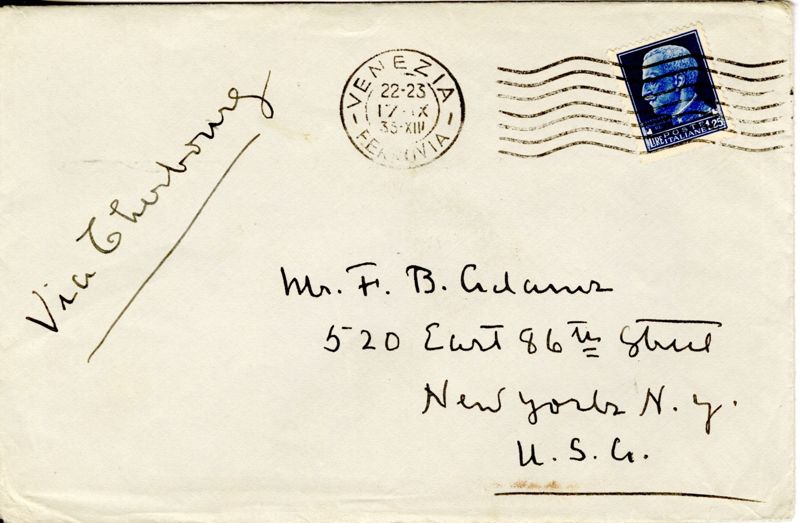 VENEZIA
22-23
17·IX
35·XIII
FERROVIA
POSTE
ITALIANE
LIRE 1,25
Via Cherbourg
Mr. F. B. Adams
520 East 86th Street
New York N. Y.
U. S. A.